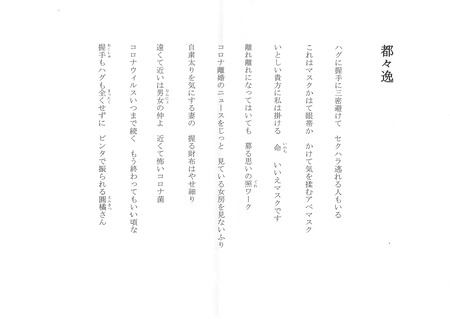 都々逸
ハグに握手に三密避けて セクハラ逃れる人もいる
これはマスクかはて眼帯か かけて気を揉むアベマスク
いとしい貴方に私は掛ける 命 いいえマスクです
離れ離れになってはいても 募る思いの照ワーク
コロナ離婚のニュースをじっと 見ている女房を見ないふり
自粛太りを気にする妻の 握る財布はやせ細り
遠くて近いは男女の仲よ 近くて怖いコロナ菌
コロナウィルスいつまで続く もう終わってもいい頃な
握手もハグも全くせずに ビンタで振られる圓橘さん